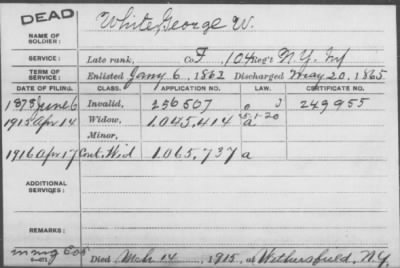 DEAD
White George W.
NAME OF SOLDIER:
SERVICE: Late rank, Co. F, 104 Reg't N.Y. Inf
TERM OF SERVICE: Enlisted Jany 6, 1862 Discharged May 20, 1865
DATE OF FILING. CLASS. APPLICATION NO. LAW. CERTIFICATE NO.
1878 June 6 Invalid, 256507 249955
1915 Apr 14 Widow, 1.045.414 a
5-1-20
Minor,
1916 Apr 17 Cont. Wid 1.065.737 a
ADDITIONAL SERVICES:
REMARKS:
Died Mch 14, 1915, at Wethersfield, N.Y.